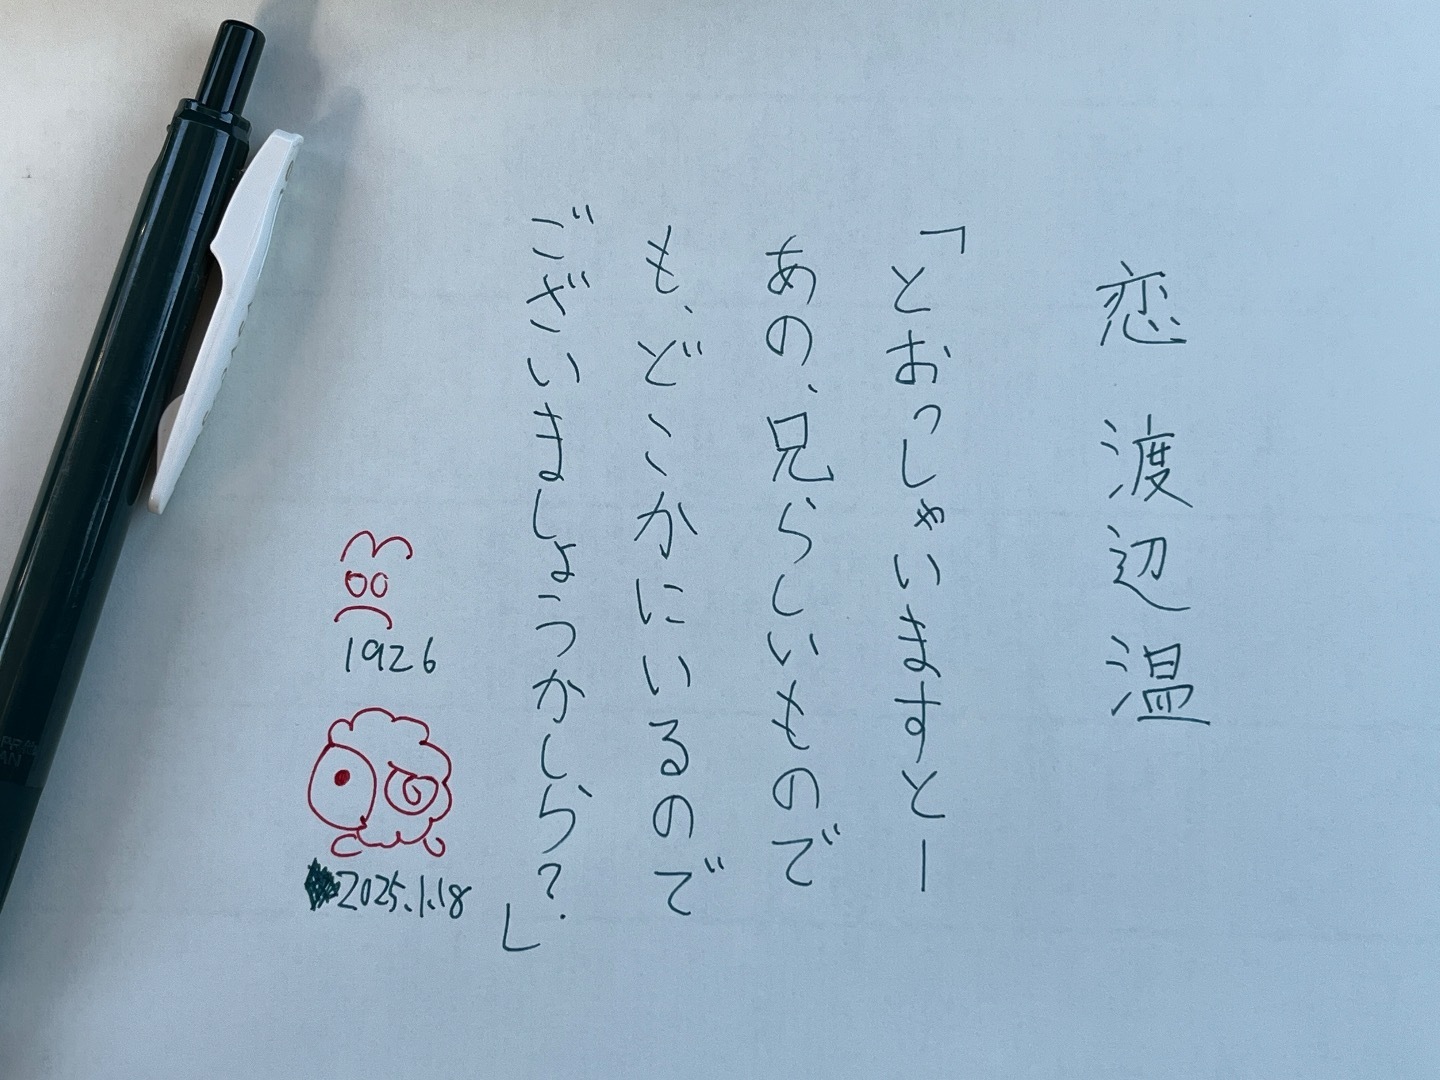 恋 渡辺温
「とおっしゃいますとー
あの、兄らしいもので
も、どこかにいるので
ございましょうかしら?」
1926
2025.1.18